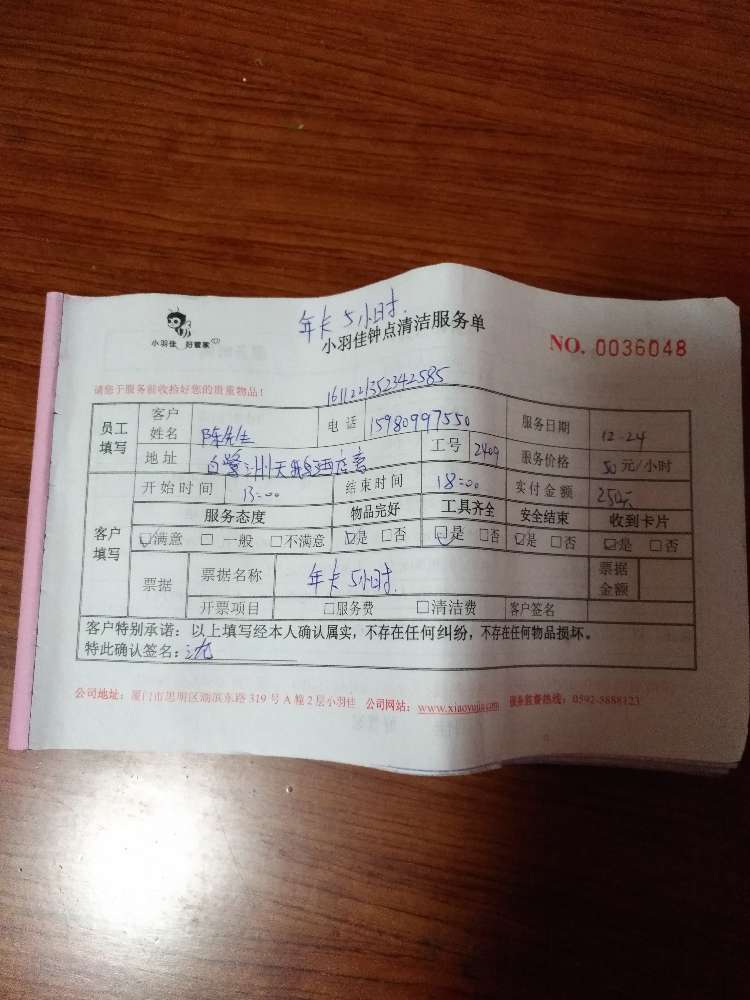 年卡 5小时.
小羽佳 好管家
小羽佳钟点清洁服务单
NO. 0036048
请您于服务前收拾好您的贵重物品!
1611221352342585
员工填写 客户姓名 陈先生 电话 15980997550 服务日期 12-24
地址 白鹭洲天鹅酒店 工号 2409 服务价格 50元/小时
开始时间 13:00 结束时间 18:00 实付金额 250元
客户填写 服务态度 物品完好 工具齐全 安全结束 收到卡片
☑满意 □ 一般 □不满意 ☑是 □否 ☑是 □否 ☑是 □否 ☑是 □否
票据 票据名称 年卡 5小时. 票据金额
开票项目 □服务费 □清洁费 客户签名
客户特别承诺:以上填写经本人确认属实,不存在任何纠纷,不存在任何物品损坏。
特此确认签名:
公司地址:厦门市思明区湖滨东路 319 号 A 幢 2 层小羽佳 公司网站:www.xiaoyujia.com 服务监督热线:0592-5888123